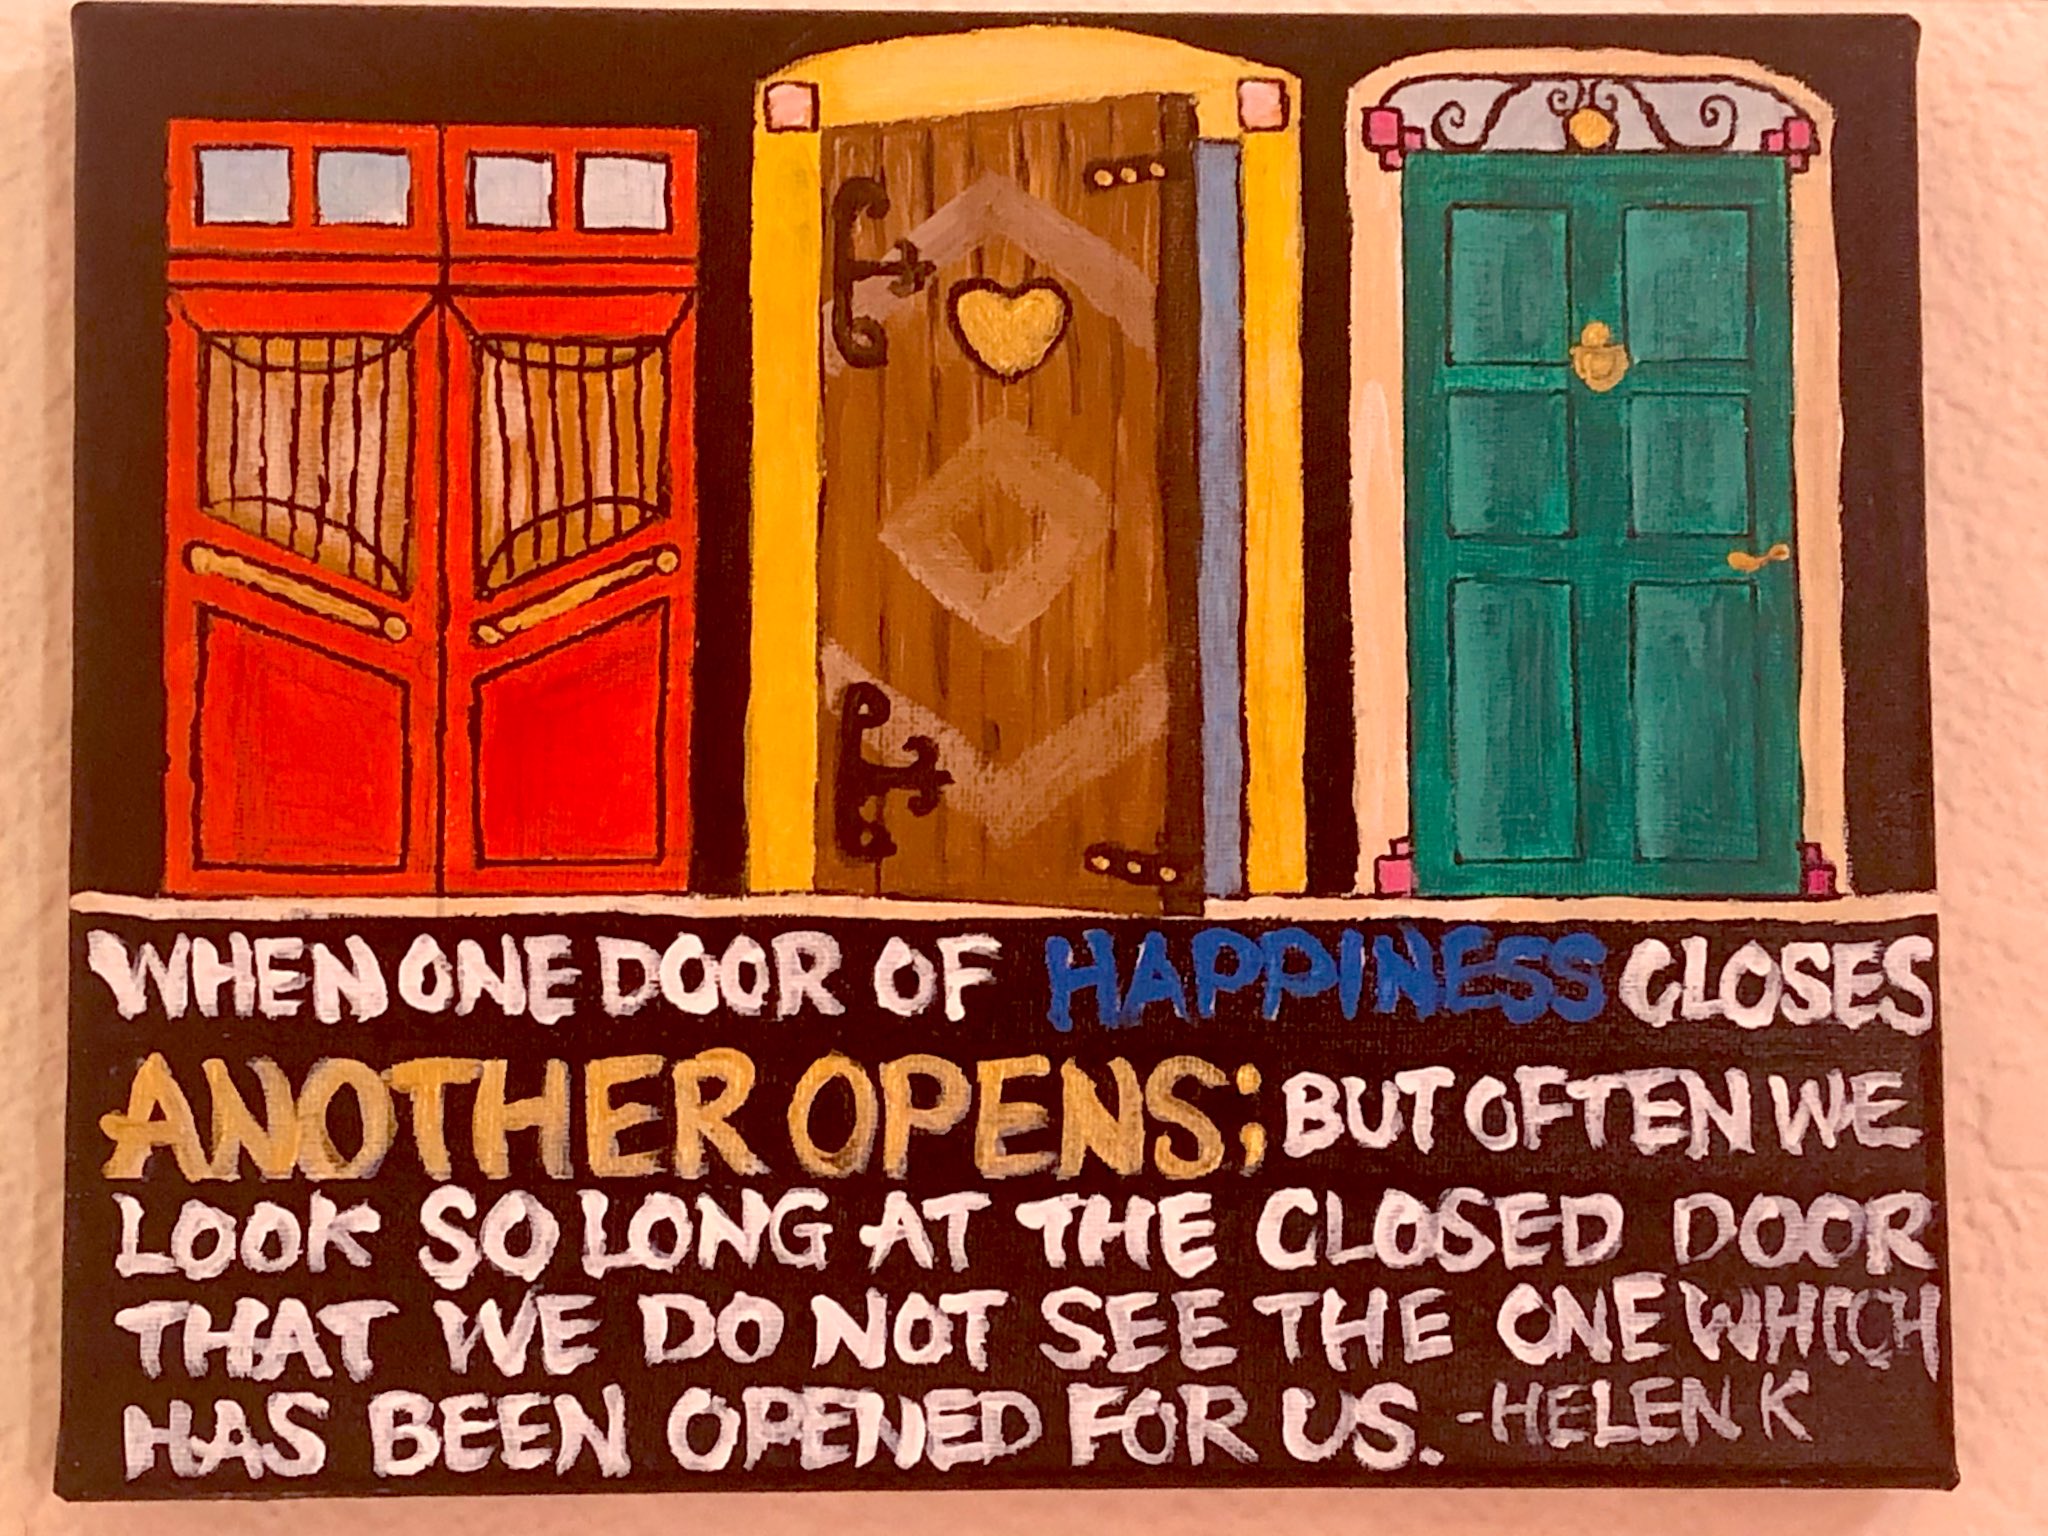 WHEN ONE DOOR OF HAPPINESS CLOSES
ANOTHER OPENS; BUT OFTEN WE
LOOK SO LONG AT THE CLOSED DOOR
THAT WE DO NOT SEE THE ONE WHICH
HAS BEEN OPENED FOR US. -HELEN K